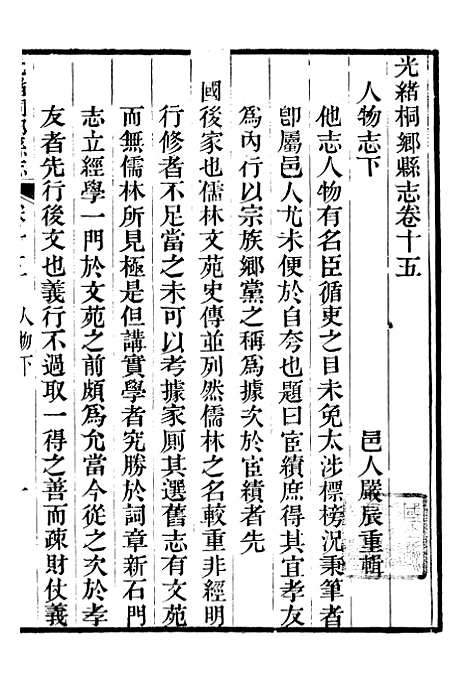 光緒桐鄉縣志卷十五
邑人嚴辰重輯
人物志下
他志人物有名臣循吏之目未免太涉標榜況秉筆者
卽屬邑人尤未便於自夸也題曰宦績庶得其宜孝友
爲內行以宗族鄉黨之稱爲據次於宦績者先
國後家也儒林文苑史傳並列然儒林之名較重非經明
行修者不足當之未可以考據家厠其選舊志有文苑
而無儒林所見極是但講實學者究勝於詞章新石門
志立經學一門於文苑之前頗爲允當今從之次於孝
友者先行後文也義行不過取一得之善而疎財仗義
人物下
一